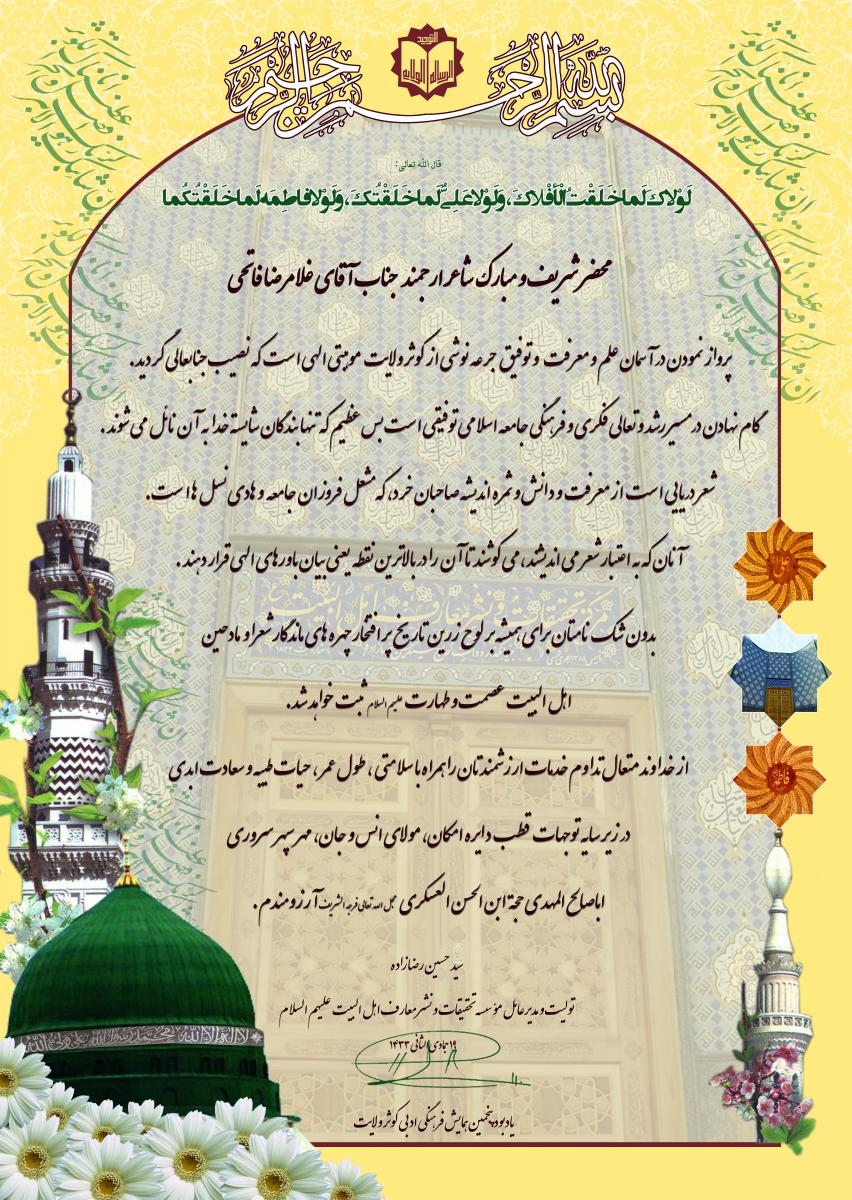 بسم الله الرحمن الرحیم
التوحید
الرساله الولایه
قال الله تعالی:
لَوْلاكَ لَما خَلَقْتُ الْأَفْلاكَ، وَلَوْلا عَلِیٌّ لَما خَلَقْتُكَ، وَلَوْلا فاطِمَه لَما خَلَقْتُكُما
محضر شریف و مبارک شاعر ارجمند جناب آقای غلامرضا فاتحی
پرواز نمودن در آسمان علم و معرفت و توفیق جرعه نوشی از کوثر ولایت موهبتی الهی است که نصیب جنابعالی گردید.
گام نهادن در مسیر رشد و تعالی فکری و فرهنگی جامعه اسلامی توفیقی است بس عظیم که تنها بندگان شایسته خدا به آن نائل می شوند.
شعر دریایی است از معرفت و دانش و ثمره اندیشه صاحبان خرد، که مشعل فروزان جامعه و هادی نسل ها است.
آنان که به اعتبار شعر می اندیشند، می کوشند تا آن را در بالاترین نقطه یعنی بیان باورهای الهی قرار دهند.
بدون شک نامتان برای همیشه بر لوح زرین تاریخ پر افتخار چهره های ماندگار شعرا و مادحین
اهل البیت عصمت و طهارت علیهم السلام ثبت خواهد شد.
از خداوند متعال تداوم خدمات ارزشمندتان را همراه با سلامتی، طول عمر، حیات طیبه و سعادت ابدی
در زیر سایه توجهات قطب دایره امکان، مولای انس و جان، مهر سپهر سروری
اباصالح المهدی حجة ابن الحسن العسکری عجل الله تعالی فرجه الشریف آرزومندم.
سید حسین رضازاده
تولیت و مدیر عامل مؤسسه تحقیقات و نشر معارف اهل البیت علیهم السلام
۱۹ جمادی الثانی ۱۴۳۳
یادبود پنجمین همایش فرهنگی ادبی کوثر ولایت
علی
فاطمه